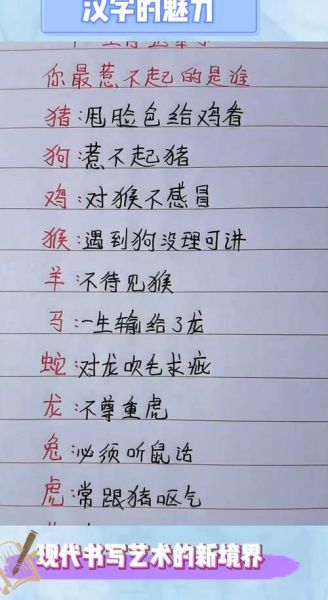 汉字的魅力
你最惹不起的是谁
猪:甩脸包给鸡看
狗:惹不起猪
鸡:对猴不感冒
猴:遇到狗没理可讲
羊:不待见猴
马:一生输给了龙
蛇:对龙吹毛求疵
龙:不尊重虎
兔:必须听鼠话
虎:常跟猪呕气
现代书写艺术的新境界